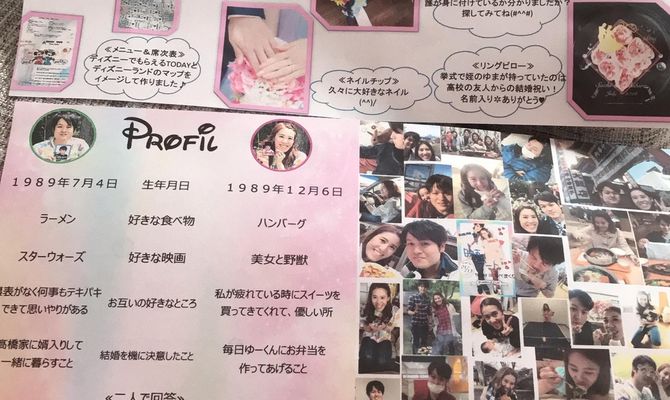 誰が身に付けているか分かりましたか？
探してみてね(#^^#)
≪メニュー＆席次表≫
ディズニーでもらえるTODAYと
ディズニーランドのマップを
イメージして作りました♪
≪ネイルチップ≫
久々に大好きなネイル
(^^)/
≪リングピロー≫
挙式で姪のゆまが持っていたのは
高校の友人からの結婚祝い！
名前入り✲ありがとう♥
PROFIL
1989年7月4日 生年月日 1989年12月6日
ラーメン 好きな食べ物 ハンバーグ
スターウォーズ 好きな映画 美女と野獣
裏表がなく何事もテキパキ
できて思いやりがある
お互いの好きなところ
私が疲れている時にスイーツを
買ってきてくれて、優しい所
高橋家に婿入りして
一緒に暮らすこと
結婚を機に決意したこと
毎日ゆーくんにお弁当を
作ってあげること
≪二人で回答≫